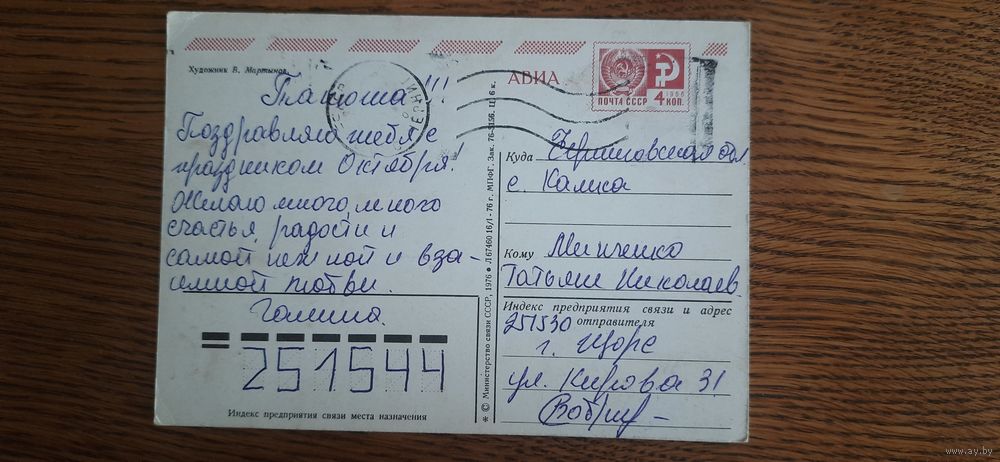 Художник В. Мартынов
АВИА
ПОЧТА СССР
1966
4 КОП.
Танюша!!!
Поздравляю тебя с
праздником Октября!
Желаю много, много
счастья, радости и
самой нежной и вза-
имной любви.
Галина.
251544
Индекс предприятия связи места назначения
* © Министерство связи СССР, 1976 ● Л 67460 16/I-76 г. МПФГ. Зак. 76-3156. Ц. 6 к.
Куда Черниговская обл.
с. Камка
Кому Минченко
Татьяне Николаев.
Индекс предприятия связи и адрес
отправителя
251530
г. Щорс
ул. Кирова 31
www.ay.by